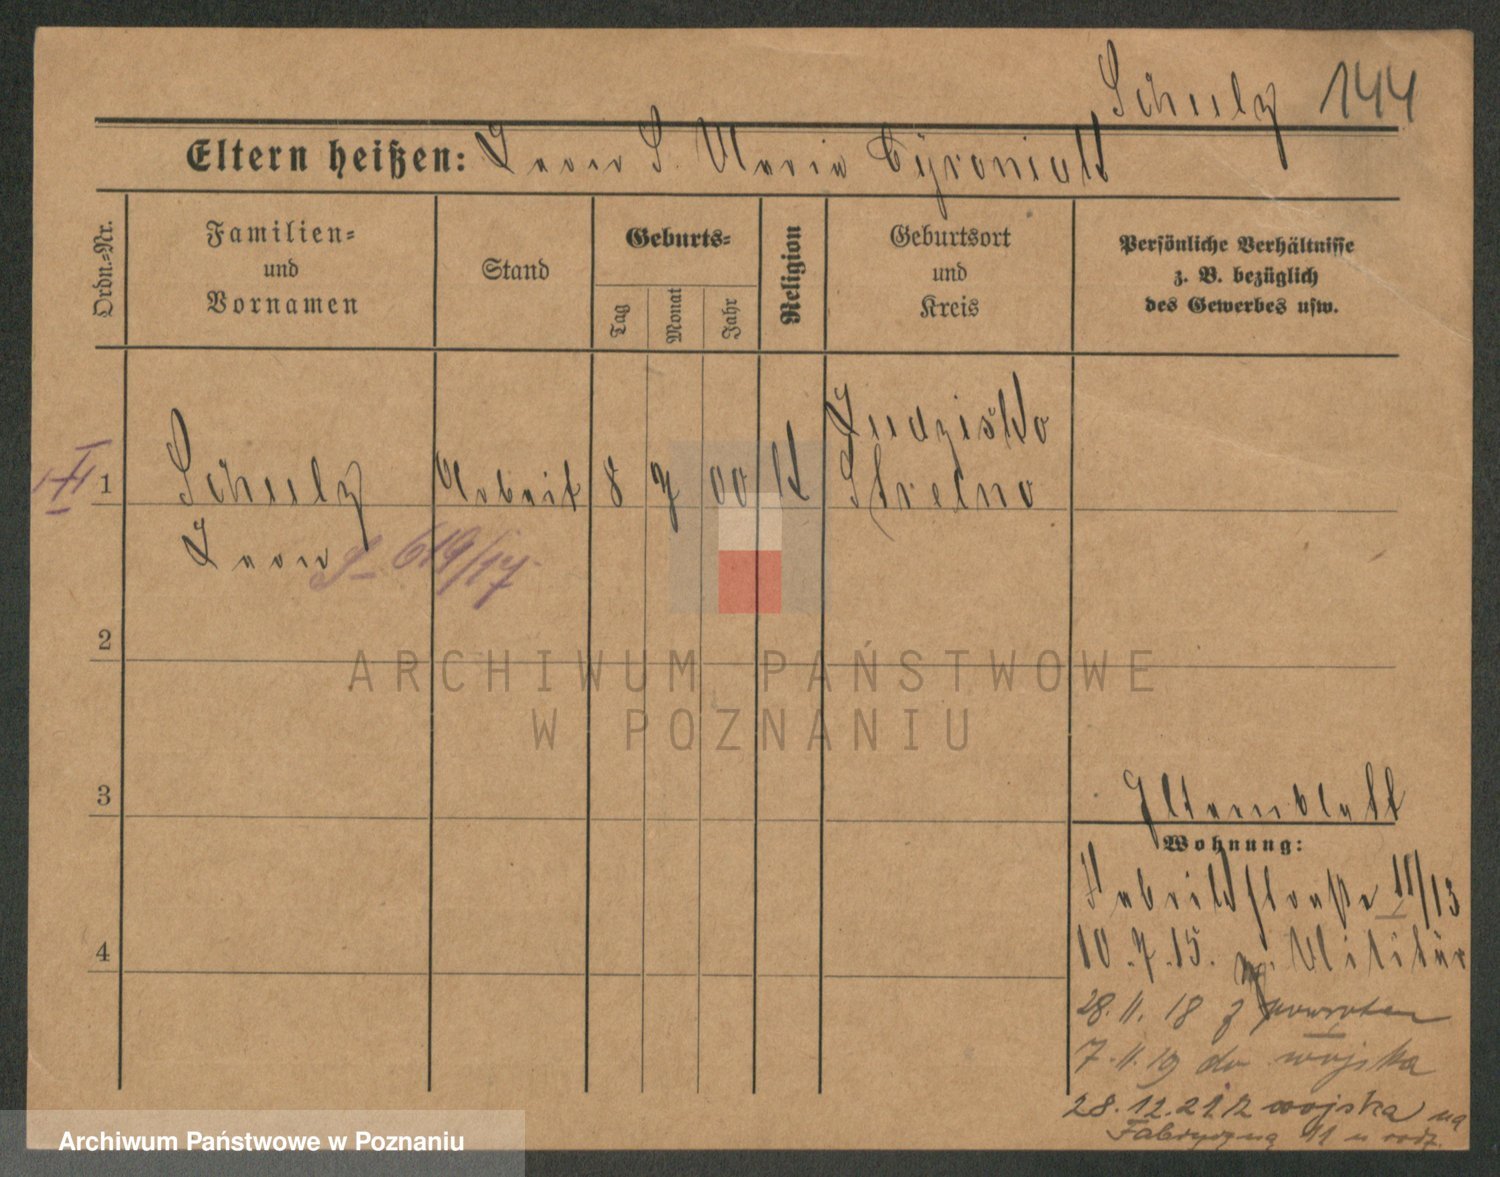 Schulz 144
Eltern heißen: Leon S. Maria Cyroniak
Ordn.-Nr.
Familien-
und
Vornamen
Stand
Geburts-
Tag
Monat
Jahr
Religion
Geburtsort
und
Kreis
Persönliche Verhältnisse
z. B. bezüglich
des Gewerbes usw.
1
Schulz
Leon
S 619/17
Arbeit
8 7 00 K
Ludzisko
Strelno
2
ARCHIWUM PAŃSTWOWE
W POZNANIU
3
4
Elternblatt
Wohnung:
Fabrikstraße 11/13
10.7.15. z. Militär
28.11.18 z powrotem
7.11.19 do wojska
28.12.21 z wojska na
Fabryczną 11 u rodz.
Archiwum Państwowe w Poznaniu